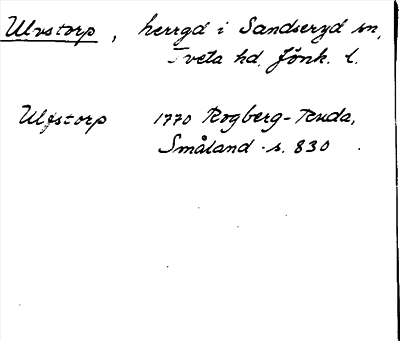 Ulvstorp, herrgd i Sandseryd sn,
Tveta hd. Jönk. l.
Ulfstorp 1770 Rogberg-Ruda,
Småland s. 830